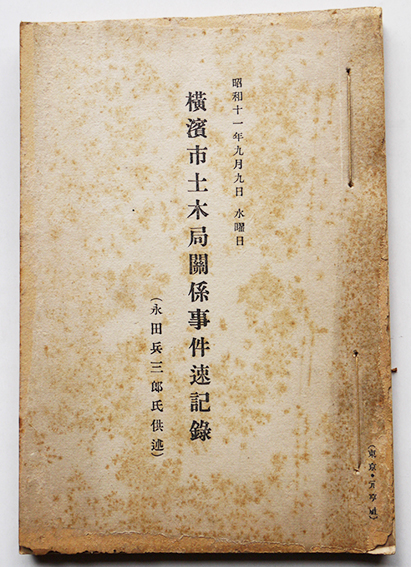 昭和十一年九月九日 水曜日
橫濱市土木局關係事件速記錄
(永田兵三郎氏供述)